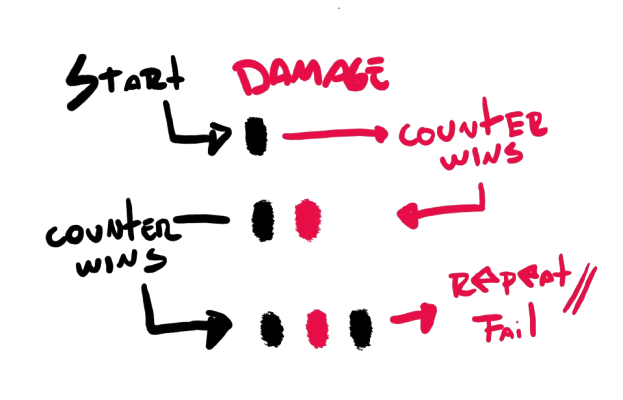 START
DAMAGE
COUNTER
WINS
COUNTER
WINS
REPEAT//
FAIL